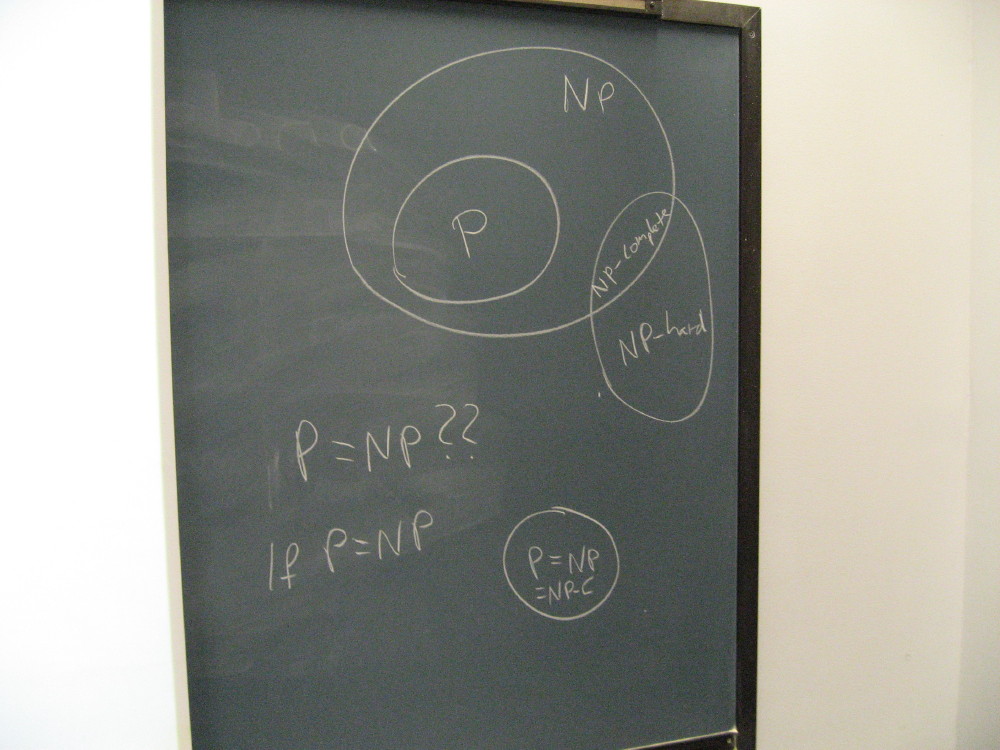 NP
P
NP-complete
NP-hard
P=NP??
If P=NP
P=NP
=NP-C